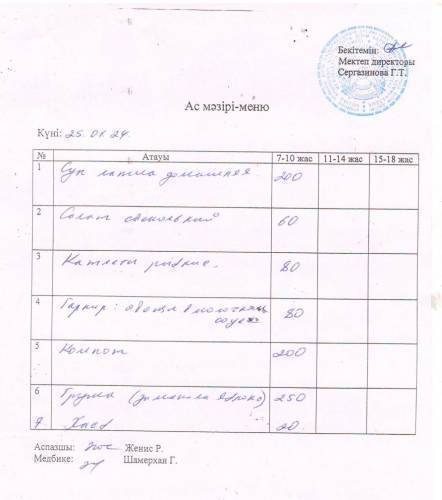 Бекітемін:
Мектеп директоры
Сергазинова Г.Т.
Ас мәзірі-меню
Күні: 25.01.24.
№ Атауы 7-10 жас 11-14 жас 15-18 жас
1 Суп лапша домашняя 200
2 Салат свекольный 60
3 Катлеты рыбные. 80
4 Гарнир: овощи в молочном
соусе 80
5 Компот 200
6 Груша 250
7 Хлеб 20
Аспазшы: Женис Р.
Медбике: Шамерхан Г.